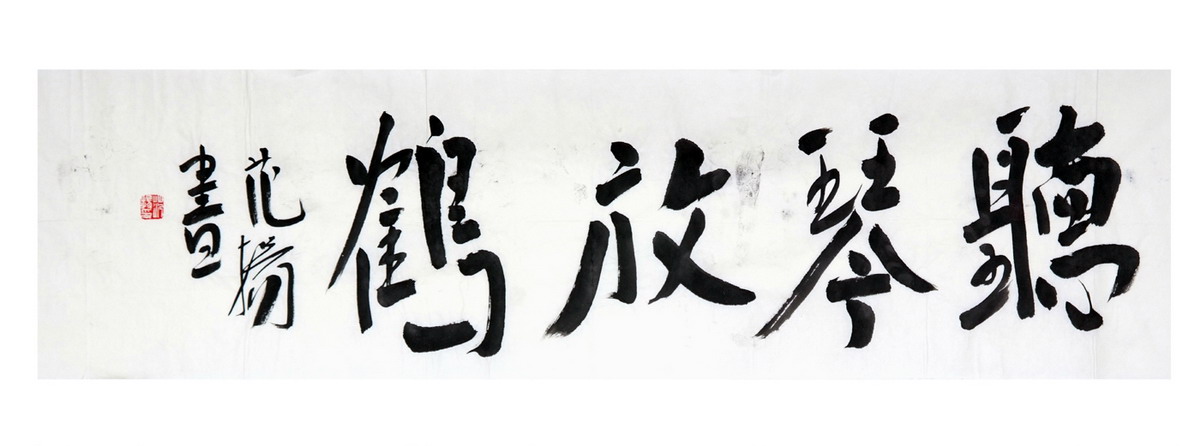 聽琴放鶴
范揚
書